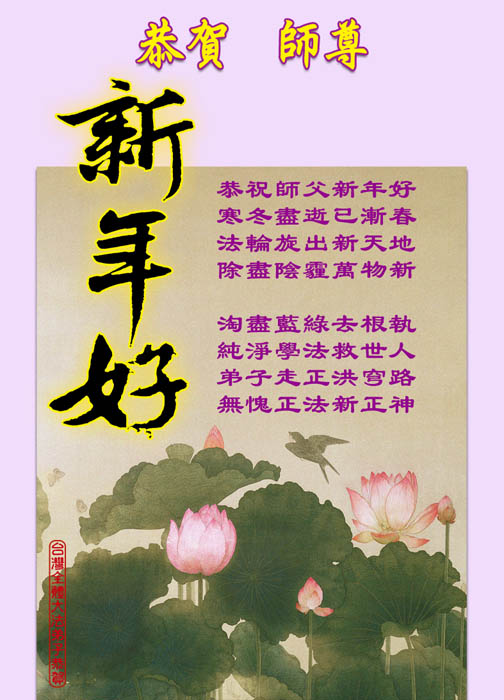 恭賀 師尊
新年好
恭祝師父新年好
寒冬盡逝已漸春
法輪旋出新天地
除盡陰霾萬物新
淘盡藍綠去根執
純淨學法救世人
弟子走正洪穹路
無愧正法新正神
台灣全體大法弟子恭賀